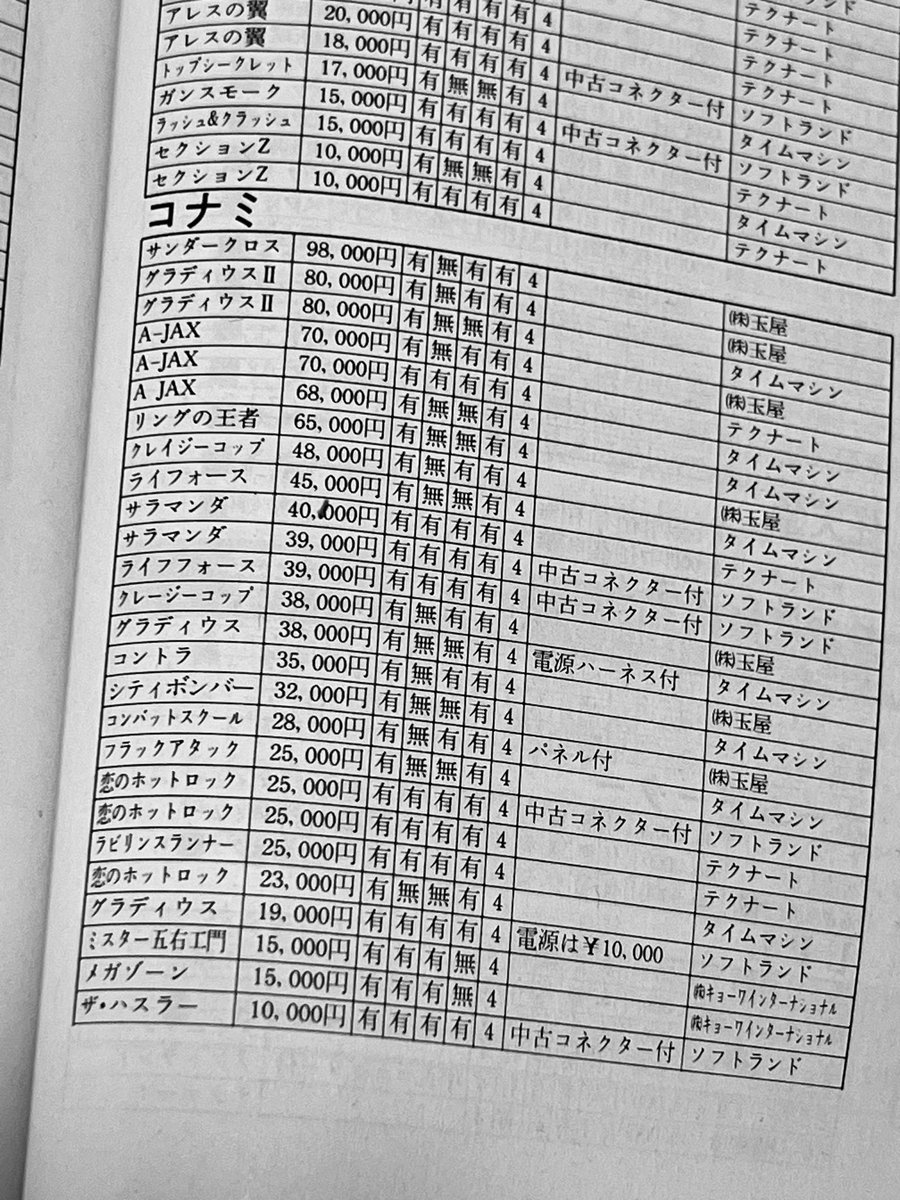 有 有 有 有 4 テクナート
アレスの翼 20,000円 有 有 有 有 4 テクナート
アレスの翼 18,000円 有 有 有 有 4 中古コネクター付 ソフトランド
トップシークレット 17,000円 有 無 無 有 4 タイムマシン
ガンスモーク 15,000円 有 有 有 有 4 中古コネクター付 ソフトランド
ラッシュ&クラッシュ 15,000円 有 有 有 有 4 テクナート
セクションZ 10,000円 有 無 無 有 4 タイムマシン
セクションZ 10,000円 有 有 有 有 4 テクナート
コナミ
サンダークロス 98,000円 有 無 有 有 4 ㈱玉屋
グラディウスⅡ 80,000円 有 無 有 有 4 ㈱玉屋
グラディウスⅡ 80,000円 有 無 無 有 4 タイムマシン
A-JAX 70,000円 有 無 有 有 4 ㈱玉屋
A-JAX 70,000円 有 有 有 有 4 テクナート
A JAX 68,000円 有 無 無 有 4 タイムマシン
リングの王者 65,000円 有 無 無 有 4 タイムマシン
クレイジーコップ 48,000円 有 無 有 有 4 ㈱玉屋
ライフォース 45,000円 有 無 無 有 4 タイムマシン
サラマンダ 40,000円 有 有 有 有 4 テクナート
サラマンダ 39,000円 有 有 有 有 4 中古コネクター付 ソフトランド
ライフフォース 39,000円 有 有 有 有 4 中古コネクター付 ソフトランド
クレージーコップ 38,000円 有 無 有 有 4 ㈱玉屋
グラディウス 38,000円 有 無 無 有 4 電源ハーネス付 タイムマシン
コントラ 35,000円 有 無 有 有 4 ㈱玉屋
シティボンバー 32,000円 有 無 無 有 4 タイムマシン
コンバットスクール 28,000円 有 無 有 有 4 パネル付 ㈱玉屋
フラックアタック 25,000円 有 無 無 有 4 タイムマシン
恋のホットロック 25,000円 有 有 有 有 4 中古コネクター付 ソフトランド
恋のホットロック 25,000円 有 有 有 有 4 テクナート
ラビリンスランナー 25,000円 有 有 有 有 4 テクナート
恋のホットロック 23,000円 有 無 無 有 4 タイムマシン
グラディウス 19,000円 有 有 有 有 4 電源は¥10,000 ソフトランド
ミスター五右エ門 15,000円 有 有 有 無 4 ㈱キョーワインターナショナル
メガゾーン 15,000円 有 有 有 無 4 ㈱キョーワインターナショナル
ザ・ハスラー 10,000円 有 有 有 有 4 中古コネクター付 ソフトランド